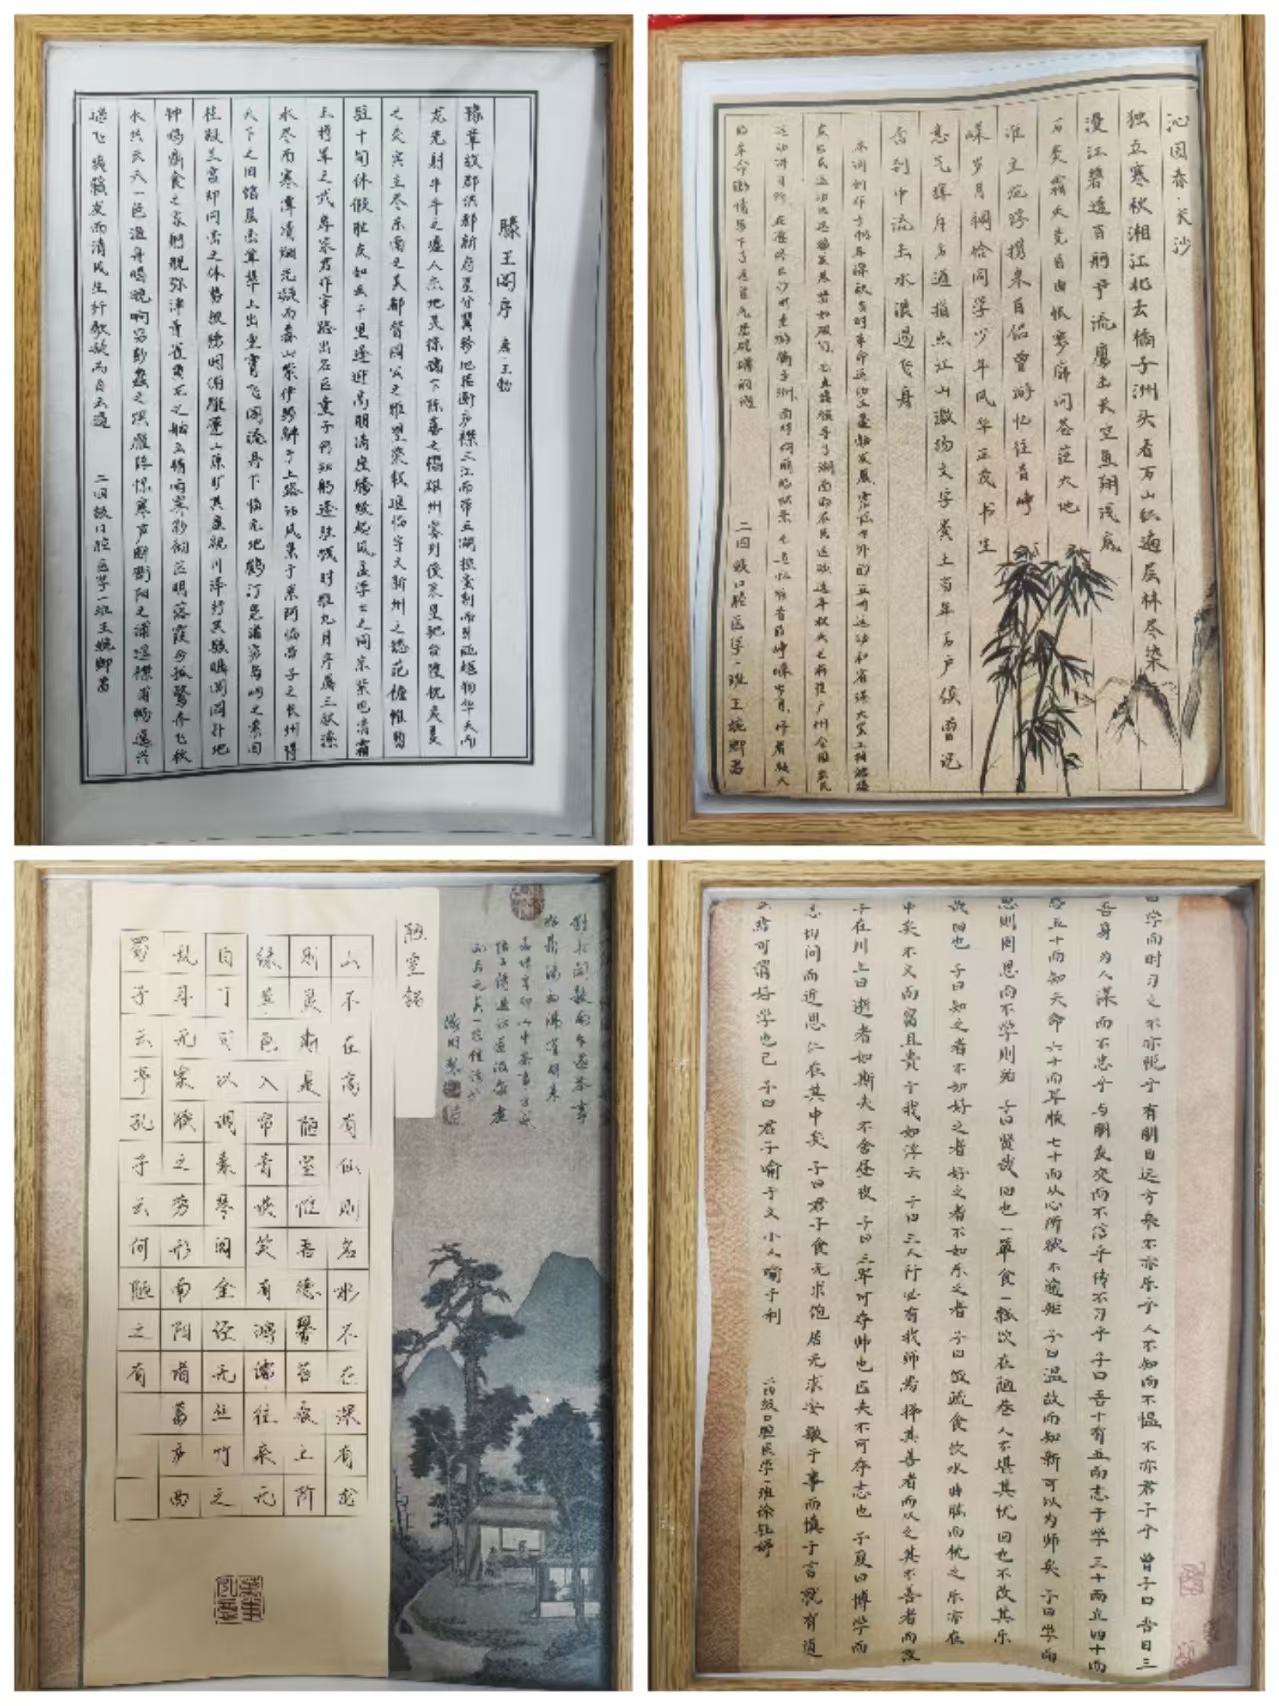 滕王阁序 唐·王勃
豫章故郡洪都新府星分翼轸地接衡庐襟三江而带五湖控蛮荆而引瓯越物华天
龙光射牛斗之墟人杰地灵徐孺下陈蕃之榻雄州雾列俊采星驰台隍枕夷夏
之交宾主尽东南之美都督阎公之雅望棨戟遥临宇文新州之懿范襜帷暂
驻十旬休假胜友如云千里逢迎高朋满座腾蛟起凤孟学士之词宗紫电清霜
王将军之武库家君作宰路出名区童子何知躬逢胜饯时维九月序属三秋潦
水尽而寒潭清烟光凝而暮山紫俨骖騑于上路访风景于崇阿临帝子之长洲得
天人之旧馆层峦耸翠上出重霄飞阁流丹下临无地鹤汀凫渚穷岛屿之萦回
桂殿兰宫即冈峦之体势披绣闼俯雕甍山原旷其盈视川泽纡其骇瞩闾阎扑地
钟鸣鼎食之家舸舰弥津青雀黄龙之舳云销雨霁彩彻区明落霞与孤鹜齐飞秋
水共长天一色渔舟唱晚响穷彭蠡之滨雁阵惊寒声断衡阳之浦遥襟甫畅逸兴
遄飞爽籁发而清风生纤歌凝而白云遏 二四级口腔医学一班王婉卿书
沁园春·长沙
独立寒秋湘江北去橘子洲头看万山红遍层林尽染
漫江碧透百舸争流鹰击长空鱼翔浅底
万类霜天竞自由怅寥廓问苍茫大地
谁主沉浮携来百侣曾游忆往昔峥
嵘岁月稠恰同学少年风华正茂书生
意气挥斥方遒指点江山激扬文字粪土当年万户侯曾记
否到中流击水浪遏飞舟
二四级口腔医学一班王婉卿书
陋室铭
山不在高有仙则名水不在深有龙
则灵斯是陋室惟吾德馨苔痕上阶
绿草色入帘青谈笑有鸿儒往来无
白丁可以调素琴阅金经无丝竹之
乱耳无案牍之劳形南阳诸葛庐西
蜀子云亭孔子云何陋之有
曰学而时习之不亦说乎 有朋自远方来不亦乐乎 人不知而不愠 不亦君子乎 曾子曰 吾日三
吾身 为人谋而不忠乎 与朋友交而不信乎 传不习乎 子曰 吾十有五而志于学 三十而立 四十而
惑 五十而知天命 六十而耳顺 七十而从心所欲不逾矩 子曰 温故而知新 可以为师矣 子曰 学而
思则罔 思而不学则殆 子曰 贤哉回也 一箪食一瓢饮在陋巷 人不堪其忧 回也不改其乐
哉回也 子曰 知之者不如好之者 好之者不如乐之者 子曰 饭疏食饮水曲肱而枕之 乐亦在
中矣 不义而富且贵于我如浮云 子曰 三人行必有我师焉 择其善者而从之 其不善者而改
子在川上曰 逝者如斯夫 不舍昼夜 子曰 三军可夺帅也 匹夫不可夺志也 子夏曰 博学而
志切问而近思 仁在其中矣 子曰 君子食无求饱 居无求安 敏于事而慎于言 就有道
正焉 可谓好学也已 子曰 君子喻于义 小人喻于利 二四级口腔医学一班徐